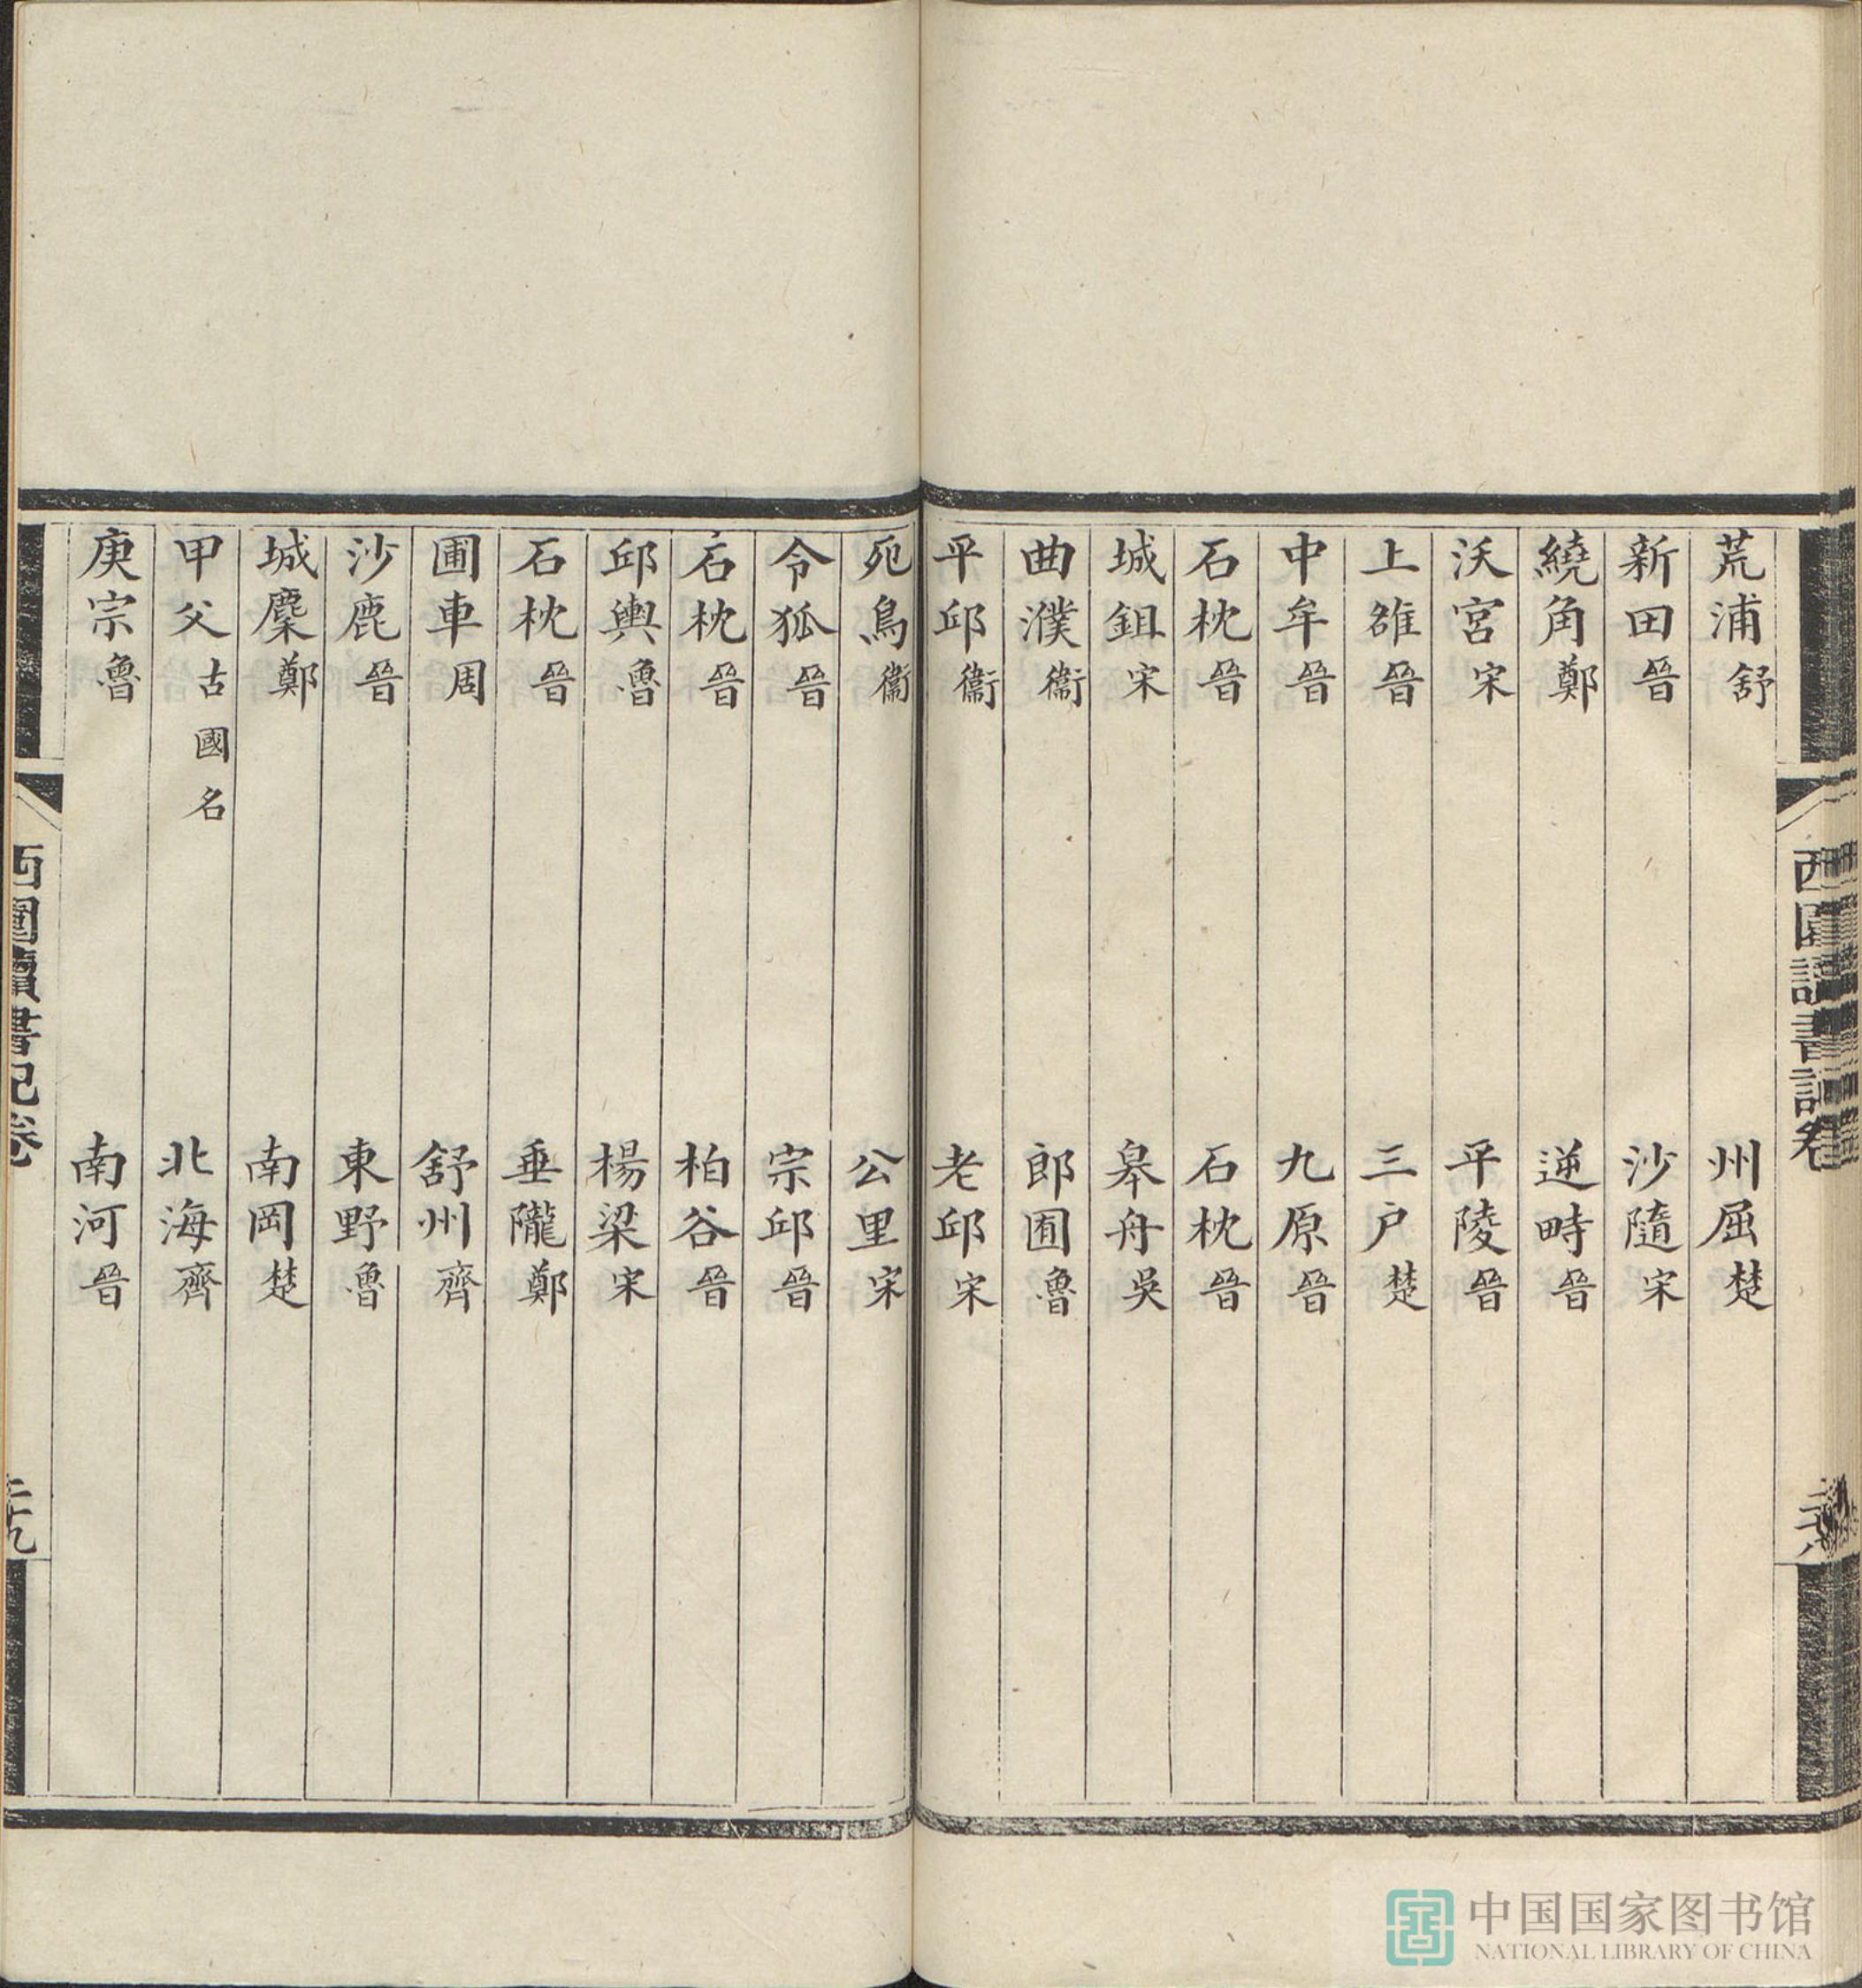 荒浦舒 州屈楚
新田晉 沙隨宋
繞角鄭 逆畤晉
沃宮宋 平陵晉
上雒晉 三户楚
中牟晉 九原晉
石枕晉 石枕晉
城鉏宋 皋舟吳
曲濮衞 郎囿魯
平邱衞 老邱宋
死鳥衞 公里宋
令狐晉 宗邱晉
石枕晉 柏谷晉
邱輿魯 楊梁宋
石枕晉 垂隴鄭
圃車周 舒州齊
沙鹿晉 東野魯
城麇鄭 南岡楚
甲父古國名 北海齊
庚宗魯 南河晉
西園讀書記卷
二十九
中国国家图书馆
NATIONAL LIBRARY OF CHINA